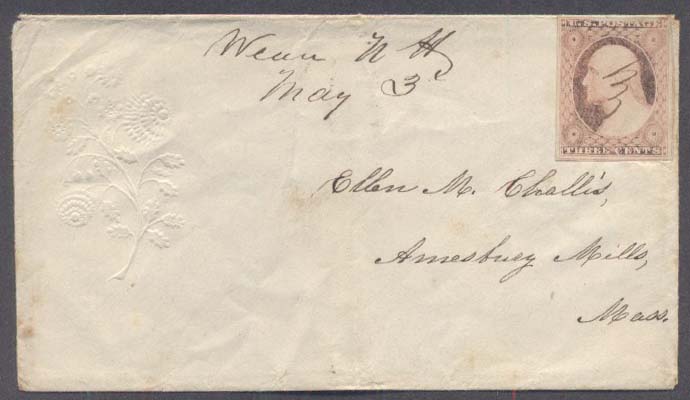 Wear N H
May 3
U.S. POSTAGE
THREE CENTS
Ellen M. Challis,
Amesbury Mills,
Mass.